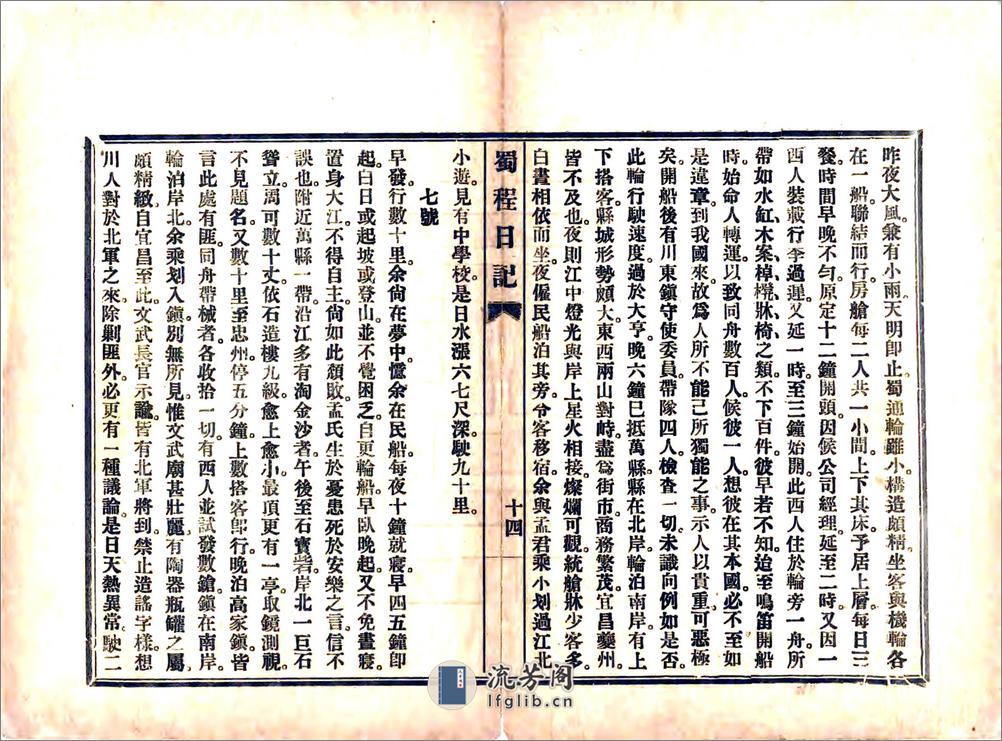 昨夜大風兼有小雨天明卽止蜀通輪雖小構造頗精坐客與機輪各
在一船聯結而行房艙每二人共一小間上下其床予居上層每日三
餐時間早晚不勻原定十二鐘開頭因候公司經理延至二時又因一
西人裝載行李過遲又延一時至三鐘始開此西人住於輪旁一舟所
帶如水缸木案棹櫈牀椅之類不下百件彼早若不知迨至鳴笛開船
時始命人轉運以致同舟數百人候彼一人想彼在其本國必不至如
是違章到我國來故爲人所不能己所獨能之事示人以貴重可惡極
矣開船後有川東鎭守使委員帶隊四人檢查一切未識向例如是否
此輪行駛速度過於大亨晚六鐘已抵萬縣縣在北岸輪泊南岸有上
下搭客縣城形勢頗大東西兩山對峙盡爲街市商務繁茂宜昌夔州
皆不及也夜則江中燈光與岸上星火相接燦爛可觀統艙牀少客多
白晝相依而坐夜僱民船泊其旁令客移宿余與孟君乘小划過江北
蜀程日記
十四
小遊見有中學校是日水漲六七尺深駛九十里
七號
早發行數十里余尙在夢中憶余在民船每夜十鐘就寢早四五鐘卽
起白日或起坡或登山並不覺困乏自更輪船早臥晚起又不免晝寢
置身大江不得自主尙如此頹敗孟氏生於憂患死於安樂之言信不
誤也附近萬縣一帶沿江多有淘金沙者午後至石寶砦岸北一巨石
聳立周可數十丈依石造樓九級愈上愈小最頂更有一亭取鏡測視
不見題名又數十里至忠州停五分鐘上數搭客卽行晚泊高家鎭皆
言此處有匪同舟帶械者各收拾一切有西人並試發數鎗鎭在南岸
輪泊岸北余乘划入鎭別無所見惟文武廟甚壯麗有陶器瓶罐之屬
頗精緻自宜昌至此文武長官示諭皆有北軍將到禁止造謠字樣想
川人對於北軍之來除剿匪外必更有一種議論是日天熱異常駛二
流芳阁
lfglib.cn